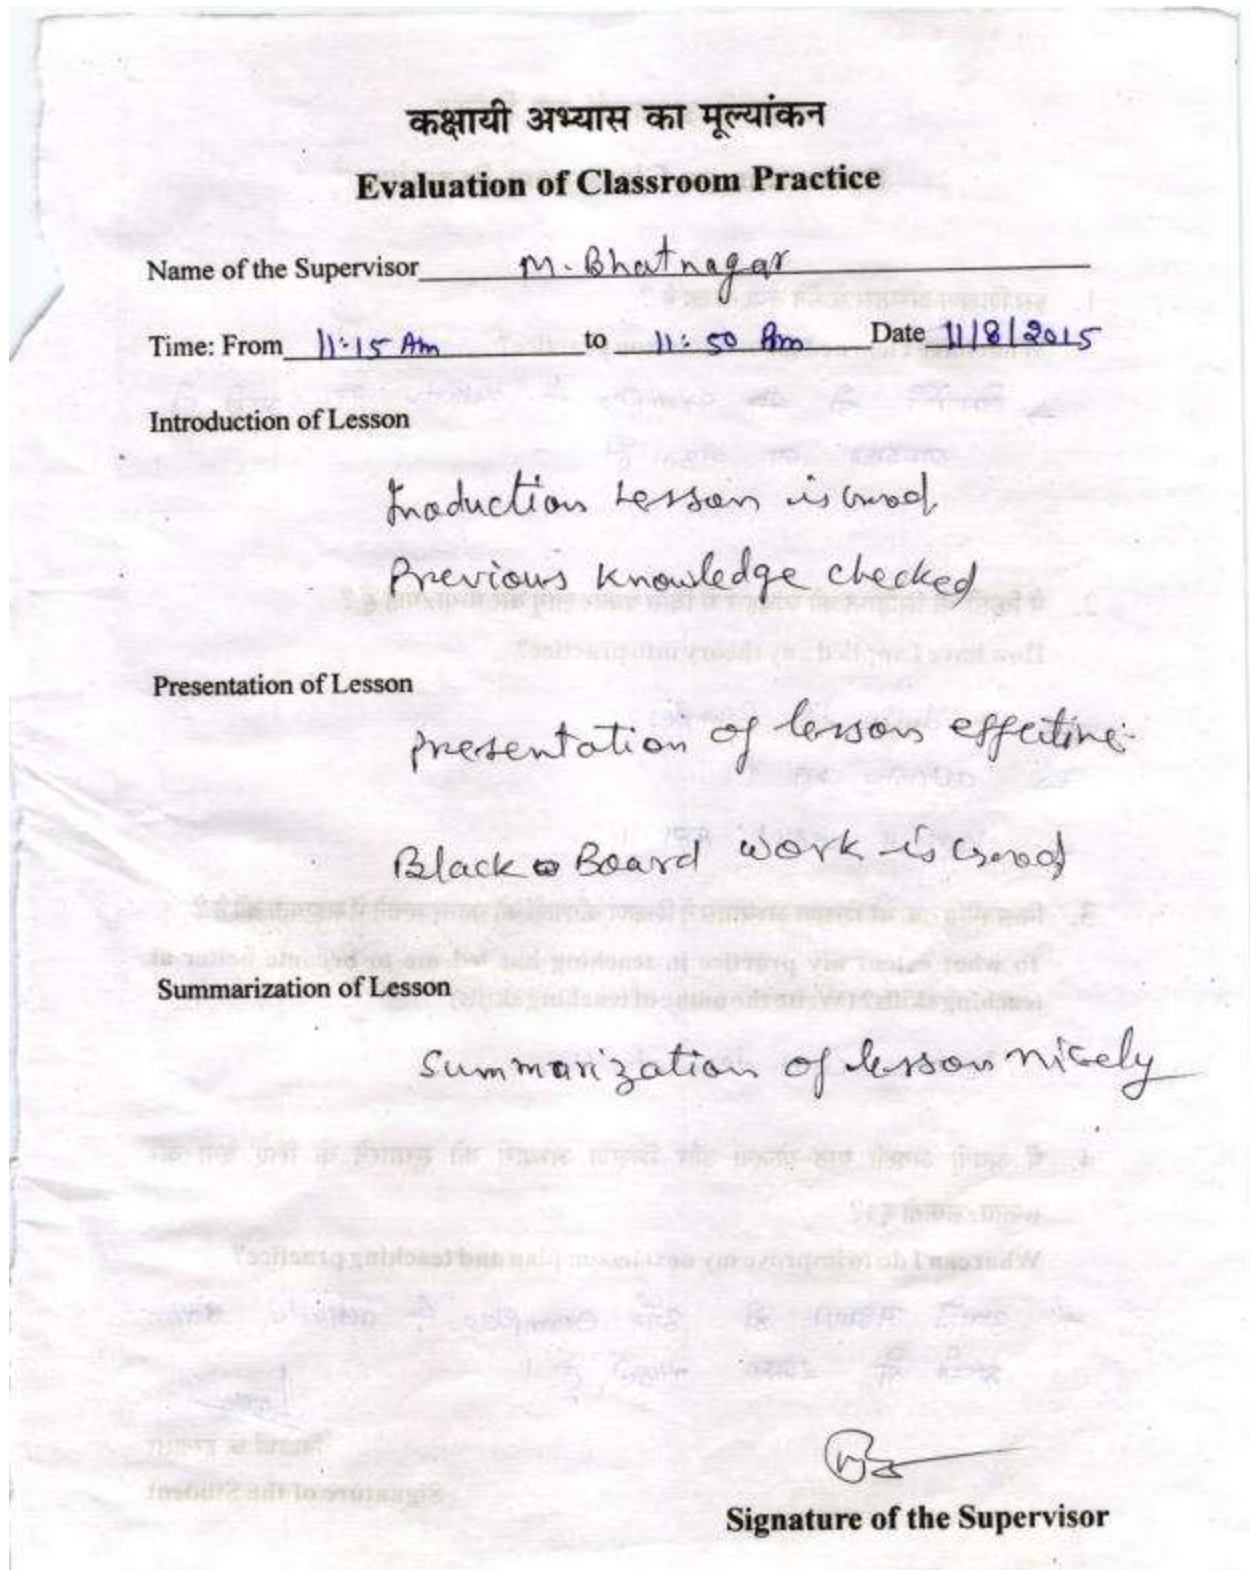 कक्षायी अभ्यास का मूल्यांकन
Evaluation of Classroom Practice
Name of the Supervisor M. Bhatnagar
Time: From 11:15 Am to 11:50 Am Date 11/8/2015
Introduction of Lesson
Inoduction Lesson is Good.
Previous knowledge checked
Presentation of Lesson
presentation of lesson effective.
Black Board work is Good
Summarization of Lesson
Summarization of lesson nicely
Signature of the Supervisor